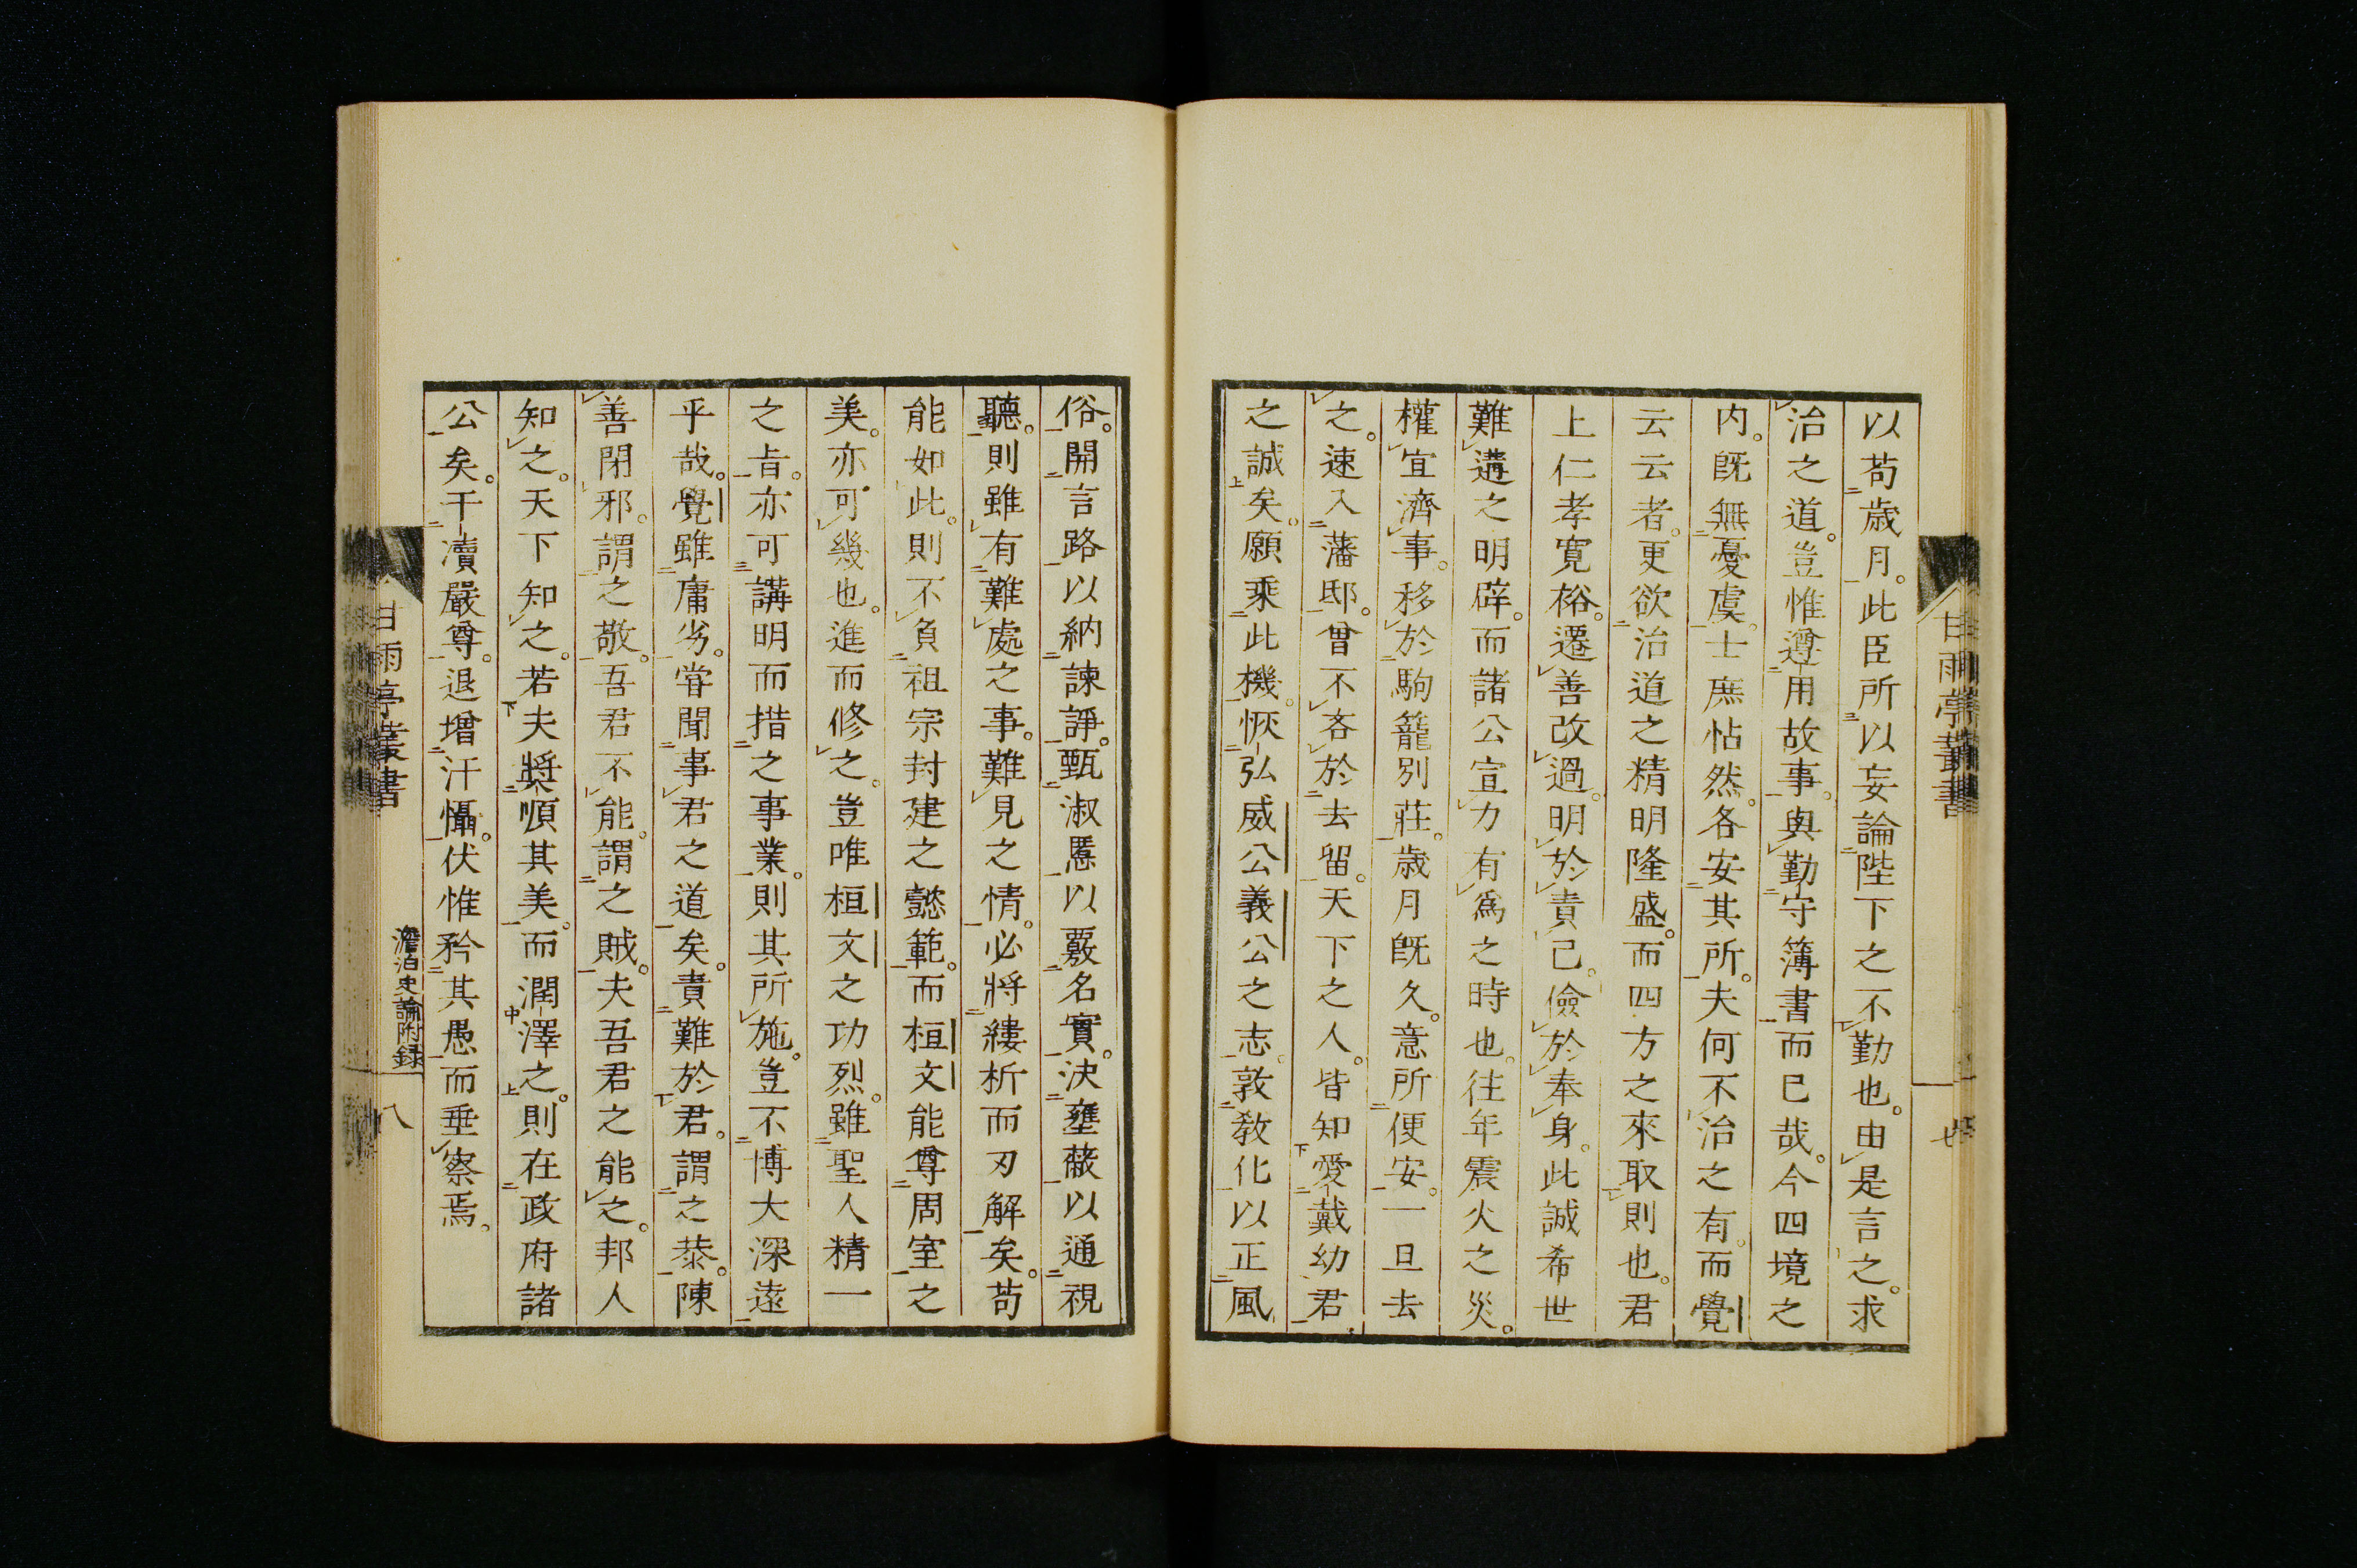 甘雨亭叢書
七
以苟歳月。此臣所以妄論陛下之不勤也。由是言之。求
治之道。豈惟遵用故事。與勤守簿書而已哉。今四境之
内。既無憂虞。士庶帖然。各安其所。夫何不治之有。而覺
云云者。更欲治道之精明隆盛。而四方之來取則也。君
上仁孝寛裕。遷善改過。明於責己。儉於奉身。此誠希世
難遘之明辟。而諸公宣力有爲之時也。往年震火之災。
權宜濟事。移於駒籠別莊。歳月既久。意所便安。一旦去
之。速入藩邸。曾不吝於去留。天下之人。皆知愛戴幼君
之誠矣。願乘此機。恢弘威公義公之志。敦教化以正風
俗。開言路以納諫諍。甄淑慝以覈名實。決壅蔽以通視
聽。則雖有難處之事。難見之情。必將縷析而刃解矣。苟
能如此。則不負祖宗封建之懿範。而桓文能尊周室之
美。亦可幾也。進而修之。豈唯桓文之功烈。雖聖人精一
之旨。亦可講明而措之事業。則其所施。豈不博大深遠
乎哉。覺雖庸劣。嘗聞事君之道矣。責難於君。謂之恭。陳
善閉邪。謂之敬。吾君不能。謂之賊。夫吾君之能之。邦人
知之。天下知之。若夫奬順其美。而潤澤之。則在政府諸
公矣。干瀆嚴尊。退增汗懾。伏惟矜其愚而垂察焉。
甘雨亭叢書
澹泊史論附録
八